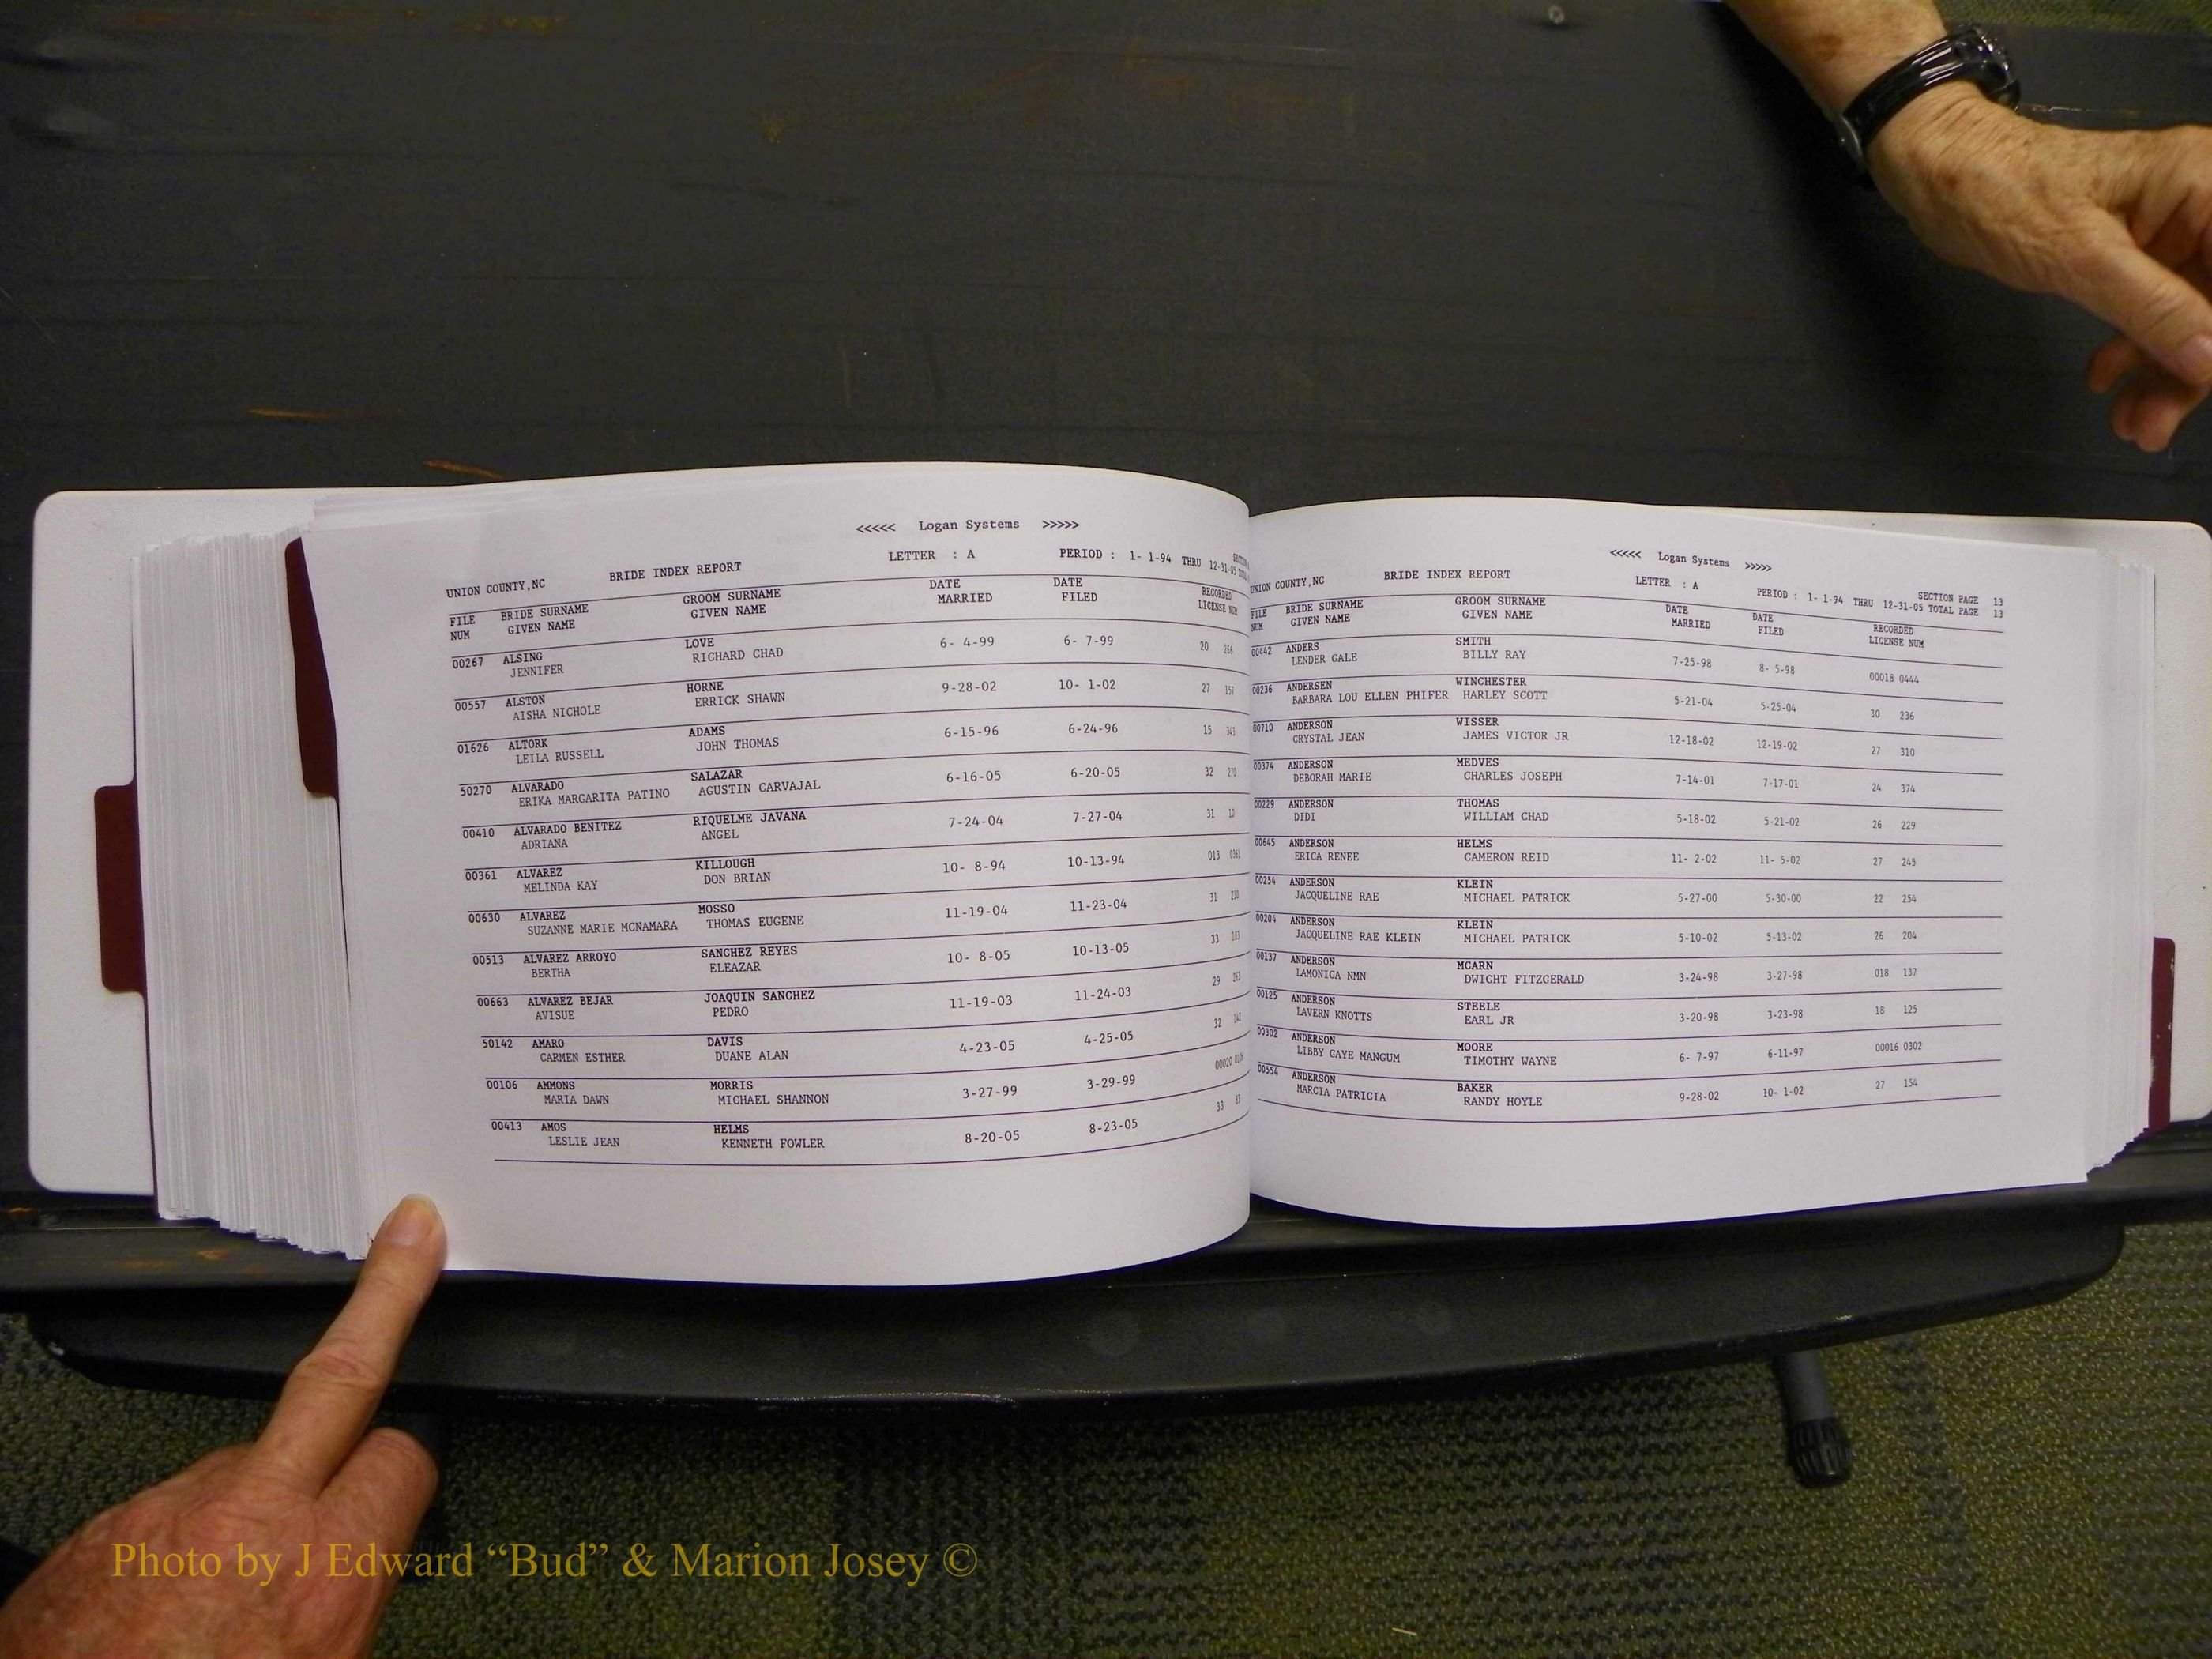 <<<<< Logan Systems >>>>>
UNION COUNTY,NC BRIDE INDEX REPORT LETTER : A PERIOD : 1- 1-94 THRU 12-31-05
FILE BRIDE SURNAME GROOM SURNAME DATE DATE RECORDED
NUM GIVEN NAME GIVEN NAME MARRIED FILED LICENSE NUM
00267 ALSING LOVE 6- 4-99 6- 7-99 20 266
JENNIFER RICHARD CHAD
00557 ALSTON HORNE 9-28-02 10- 1-02 27 157
AISHA NICHOLE ERRICK SHAWN
01626 ALTORK ADAMS 6-15-96 6-24-96 15 343
LEILA RUSSELL JOHN THOMAS
50270 ALVARADO SALAZAR 6-16-05 6-20-05 32 270
ERIKA MARGARITA PATINO AGUSTIN CARVAJAL
00410 ALVARADO BENITEZ RIQUELME JAVANA 7-24-04 7-27-04 31 10
ADRIANA ANGEL
00361 ALVAREZ KILLOUGH 10- 8-94 10-13-94 013 0361
MELINDA KAY DON BRIAN
00630 ALVAREZ MOSSO 11-19-04 11-23-04 31 230
SUZANNE MARIE MCNAMARA THOMAS EUGENE
00513 ALVAREZ ARROYO SANCHEZ REYES 10- 8-05 10-13-05 33 183
BERTHA ELEAZAR
00663 ALVAREZ BEJAR JOAQUIN SANCHEZ 11-19-03 11-24-03 29 263
AVISUE PEDRO
50142 AMARO DAVIS 4-23-05 4-25-05 32 142
CARMEN ESTHER DUANE ALAN
00106 AMMONS MORRIS 3-27-99 3-29-99 00020
MARIA DAWN MICHAEL SHANNON
00413 AMOS HELMS 8-20-05 8-23-05 33 83
LESLIE JEAN KENNETH FOWLER
<<<<< Logan Systems >>>>>
UNION COUNTY,NC BRIDE INDEX REPORT LETTER : A PERIOD : 1- 1-94 THRU 12-31-05 SECTION PAGE 13
TOTAL PAGE 13
FILE BRIDE SURNAME GROOM SURNAME DATE DATE RECORDED
NUM GIVEN NAME GIVEN NAME MARRIED FILED LICENSE NUM
00442 ANDERS SMITH 7-25-98 8- 5-98 00018 0444
LENDER GALE BILLY RAY
00236 ANDERSEN WINCHESTER 5-21-04 5-25-04 30 236
BARBARA LOU ELLEN PHIFER HARLEY SCOTT
00710 ANDERSON WISSER 12-18-02 12-19-02 27 310
CRYSTAL JEAN JAMES VICTOR JR
00374 ANDERSON MEDVES 7-14-01 7-17-01 24 374
DEBORAH MARIE CHARLES JOSEPH
00229 ANDERSON THOMAS 5-18-02 5-21-02 26 229
DIDI WILLIAM CHAD
00645 ANDERSON HELMS 11- 2-02 11- 5-02 27 245
ERICA RENEE CAMERON REID
00254 ANDERSON KLEIN 5-27-00 5-30-00 22 254
JACQUELINE RAE MICHAEL PATRICK
00204 ANDERSON KLEIN 5-10-02 5-13-02 26 204
JACQUELINE RAE KLEIN MICHAEL PATRICK
00137 ANDERSON MCARN 3-24-98 3-27-98 018 137
LAMONICA NMN DWIGHT FITZGERALD
00125 ANDERSON STEELE 3-20-98 3-23-98 18 125
LAVERN KNOTTS EARL JR
00302 ANDERSON MOORE 6- 7-97 6-11-97 00016 0302
LIBBY GAYE MANGUM TIMOTHY WAYNE
00554 ANDERSON BAKER 9-28-02 10- 1-02 27 154
MARCIA PATRICIA RANDY HOYLE
Photo by J Edward “Bud” & Marion Josey ©